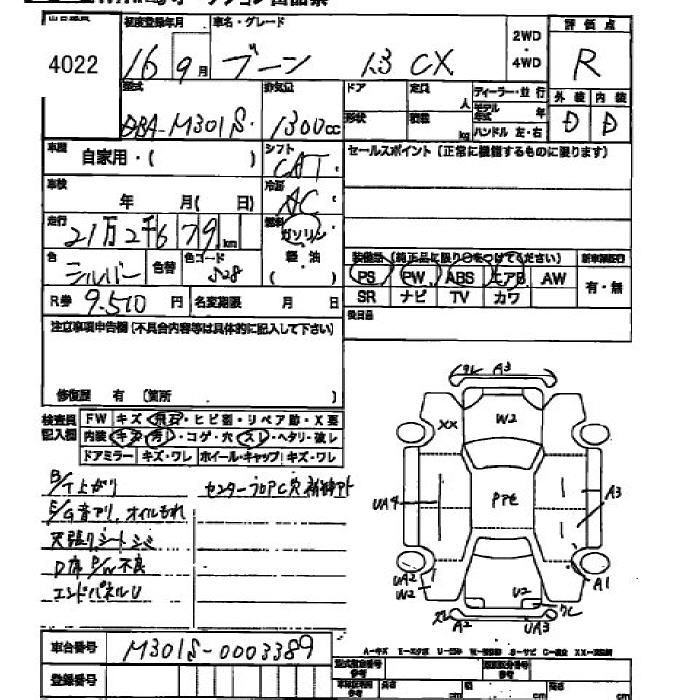 4022
初度登録年月 車名・グレード
16 9月 ブーン 1.3 CX
2WD
・
4WD
評価点
R
型式 排気量 ドア 定員 人 ディーラー・並行
DBA-M301S 1300cc 形状 積載 kg モデル年式 年
ハンドル 左・右
外装 内装
D D
車歴 自家用・( )
シフト CAT
セールスポイント (正常に機能するものに限ります)
車検 年 月( 日)
冷房 AC
走行 21万2千679km
燃料 ガソリン
軽・油
( )
色 シルバー 色替 色コード S28
装備品 (純正品に限り○をつけてください)
PS PW ABS エアB AW 有・無
SR ナビ TV カワ
R券 9,510円 名変期限 月 日
後日品
注意事項申告欄 (不具合内容等は具体的に記入して下さい)
修復歴 有 (箇所 )
検査員記入欄
FW キズ・飛石・ヒビ割・リペア跡・X要
内装 キズ・汚レ・コゲ・穴・スレ・ヘタリ・破レ
ドアミラー キズ・ワレ ホイール・キャップ キズ・ワレ
B/T上がり センターフロアC穴
E/G音アリ、オイルもれ
天張り、シートシミ
D席P/W不良
エンドパネルU
ワレ A3
XX W2
UA4 Pアセ A3
UA2
W2 U2 A1
スレ A2 UA3 ワレ
車台番号 M301S-0003389
登録番号
A-キズ
長さ cm cm cm